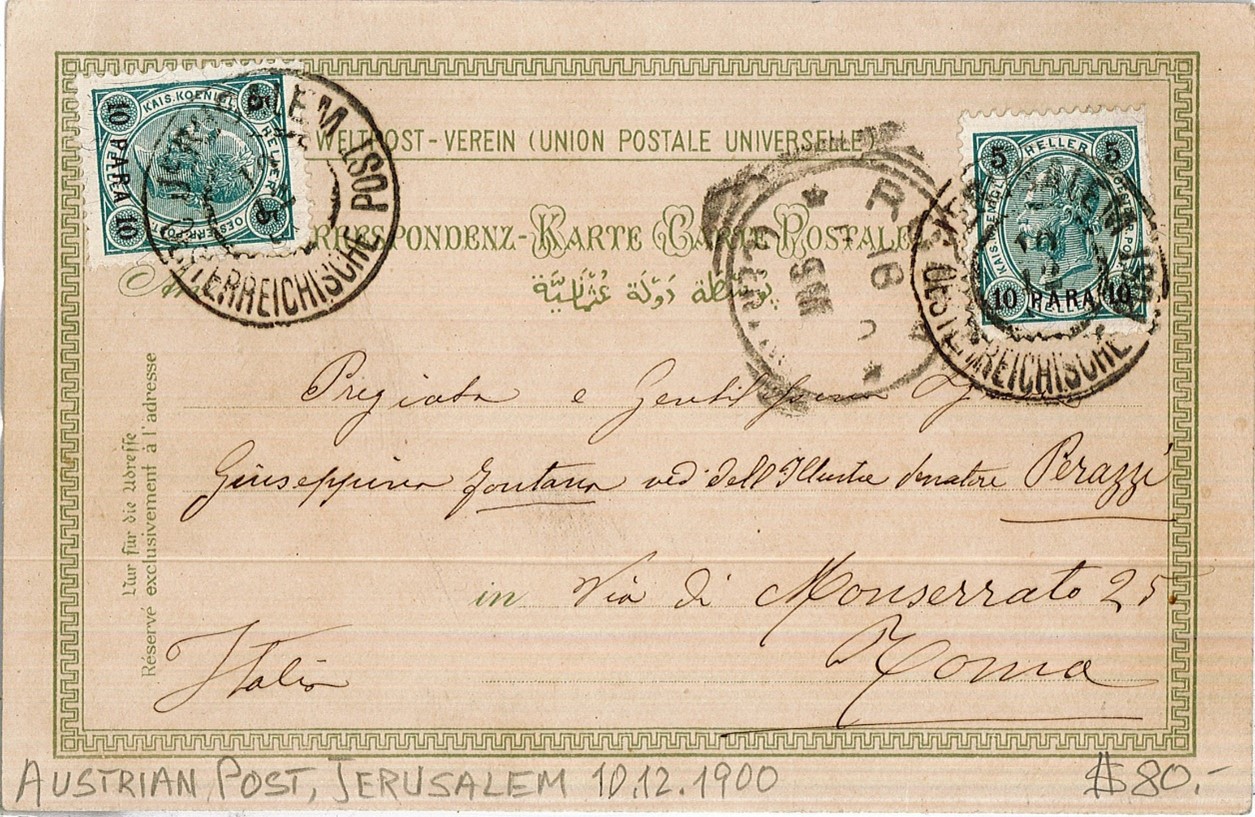 WELTPOST-VEREIN (UNION POSTALE UNIVERSELLE)
RRESPONDENZ-KARTE CARTE POSTALE
دولة عثمانية
Nur für die Adresse
Réservé exclusivement à l'adresse
Pregiata e Gentil
Giuseppina Fontana ved dell'Illustre Senatore Perazzi
in Via di Monserrato 25
Roma
Italia
KAIS. KOENIGL.
HELLER
OESTERR. POST
5 5
10 PARA 10
JERUSALEM
ÖSTERREICHISCHE POST
5 HELLER 5
KAIS. KOENIGL.
OESTERR. POST
10 PARA 10
HELLER
JERUSALEM
ÖSTERREICHISCHE POST
10
12
ROMA
16
AUSTRIAN POST, JERUSALEM 10.12.1900
$80.-